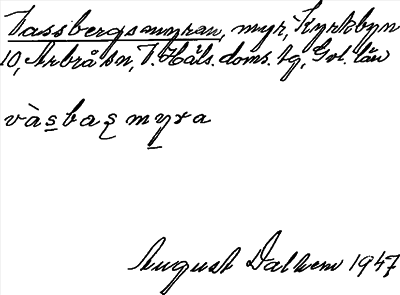 Vassbergsmyran, myr, Kyrkbyn
10, Arbrå sn, V. Häls. doms. tg, Gvl. län
vàsbaʂ myra
August Dalhem 1947